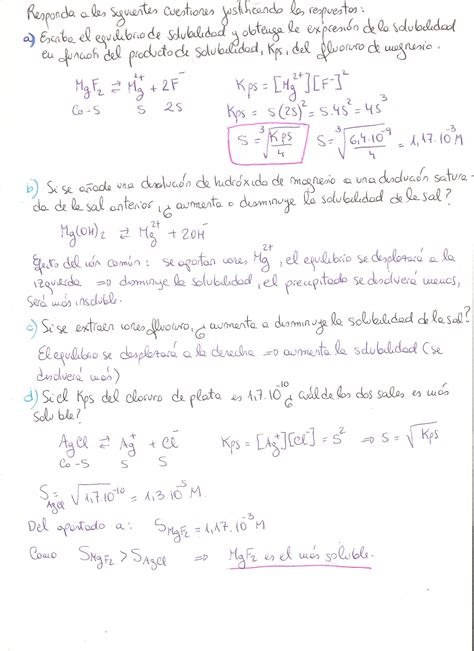 Responda a las siguientes cuestiones justificando las respuestas:
a) Escriba el equilibrio de solubilidad y obtenga la expresión de la solubilidad
en función del producto de solubilidad, Kps, del fluoruro de magnesio.
MgF₂ ⇌ Mg²⁺ + 2F⁻ Kps = [Mg²⁺][F⁻]²
Co-S S 2S Kps = S(2S)² = S·4S² = 4S³
S = ∛(Kps/4) S = ∛(6,4·10⁻⁹/4) = 1,17·10⁻³M
b) Si se añade una disolución de hidróxido de magnesio a una disolución satura-
da de la sal anterior, ¿aumenta o disminuye la solubilidad de la sal?
Mg(OH)₂ ⇌ Mg²⁺ + 2OH⁻
Efecto del ión común: se aportan iones Mg²⁺, el equilibrio se desplazará a la
izquierda ⇒ disminuye la solubilidad, el precipitado se disolverá menos,
será más insoluble.
c) Si se extraen iones fluoruro, ¿aumenta o disminuye la solubilidad de la sal?
El equilibrio se desplazará a la derecha ⇒ aumenta la solubilidad (se
disolverá más)
d) Si el Kps del cloruro de plata es 1,7·10⁻¹⁰ ¿cuál de las dos sales es más
soluble?
AgCl ⇌ Ag⁺ + Cl⁻ Kps = [Ag⁺][Cl⁻] = S² ⇒ S = √Kps
Co-S S S
S AgCl = √1,7·10⁻¹⁰ = 1,3·10⁻⁵M.
Del apartado a: S MgF₂ = 1,17·10⁻³M
Como S MgF₂ > S AgCl ⇒ MgF₂ es el más soluble.